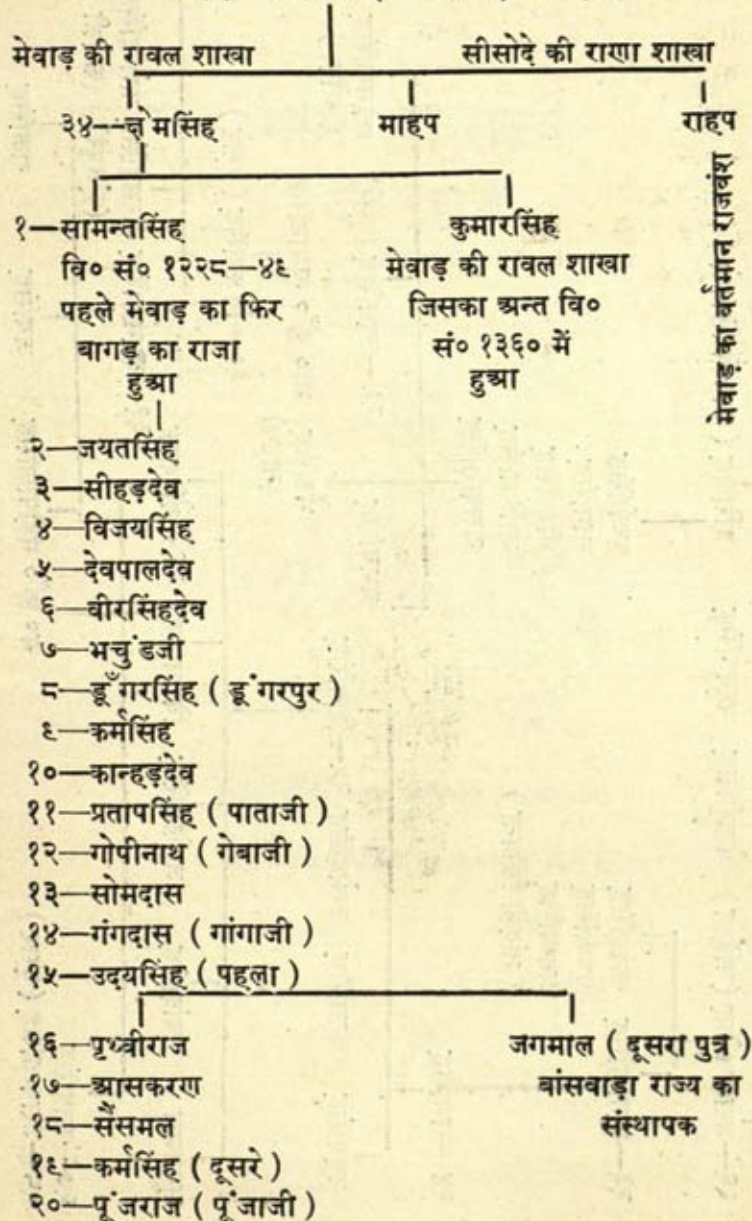 मेवाड़ की रावल शाखा सीसोदे की राणा शाखा
३४—क्षेमसिंह माहप राहप
मेवाड़ का वर्तमान राजवंश
१—सामन्तसिंह
वि० सं० १२२८—४६
पहले मेवाड़ का फिर
बागड़ का राजा
हुआ
कुमारसिंह
मेवाड़ की रावल शाखा
जिसका अन्त वि०
सं० १३६० में
हुआ
२—जयतसिंह
३—सीहड़देव
४—विजयसिंह
५—देवपालदेव
६—वीरसिंहदेव
७—भचुंडजी
८—डूँगरसिंह ( डूंगरपुर )
९—कर्मसिंह
१०—कान्हड़देव
११—प्रतापसिंह ( पाताजी )
१२—गोपीनाथ ( गेबाजी )
१३—सोमदास
१४—गंगदास ( गांगाजी )
१५—उदयसिंह ( पहला )
१६—पृथ्वीराज
१७—आसकरण
१८—सैंसमल
१९—कर्मसिंह ( दूसरे )
२०—पूंजराज ( पूंजाजी )
जगमाल ( दूसरा पुत्र )
बांसवाड़ा राज्य का
संस्थापक